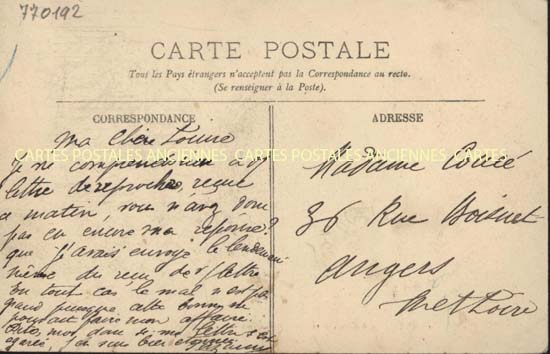 770192
CARTE POSTALE
Tous les Pays étrangers n'acceptent pas la Correspondance au recto.
(Se renseigner à la Poste).
CORRESPONDANCE
ADRESSE
Ma chère Louise
CARTES POSTALES ANCIENNES CARTES POSTALES ANCIENNES CARTES
Je ne comprends rien à
lettre de reproches reçue
ce matin, vous n'avez donc
pas eu encore ma réponse?
que j'avais envoyé le lendemain
même du reçu de lettre
En tout cas le mal n'est pas
grand puisque cette
pouvait faire mon affaire
donc si ma lettre s'est
égarée, j'en suis bien
Madame
36 Rue Boisnet
Angers
M et Loire